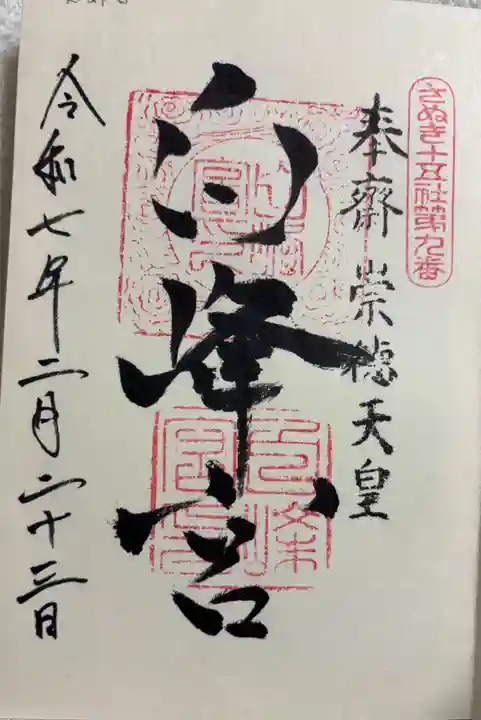 さぬき十五社第九番
奉齋 崇徳天皇
白峰宮
令和七年二月二十三日